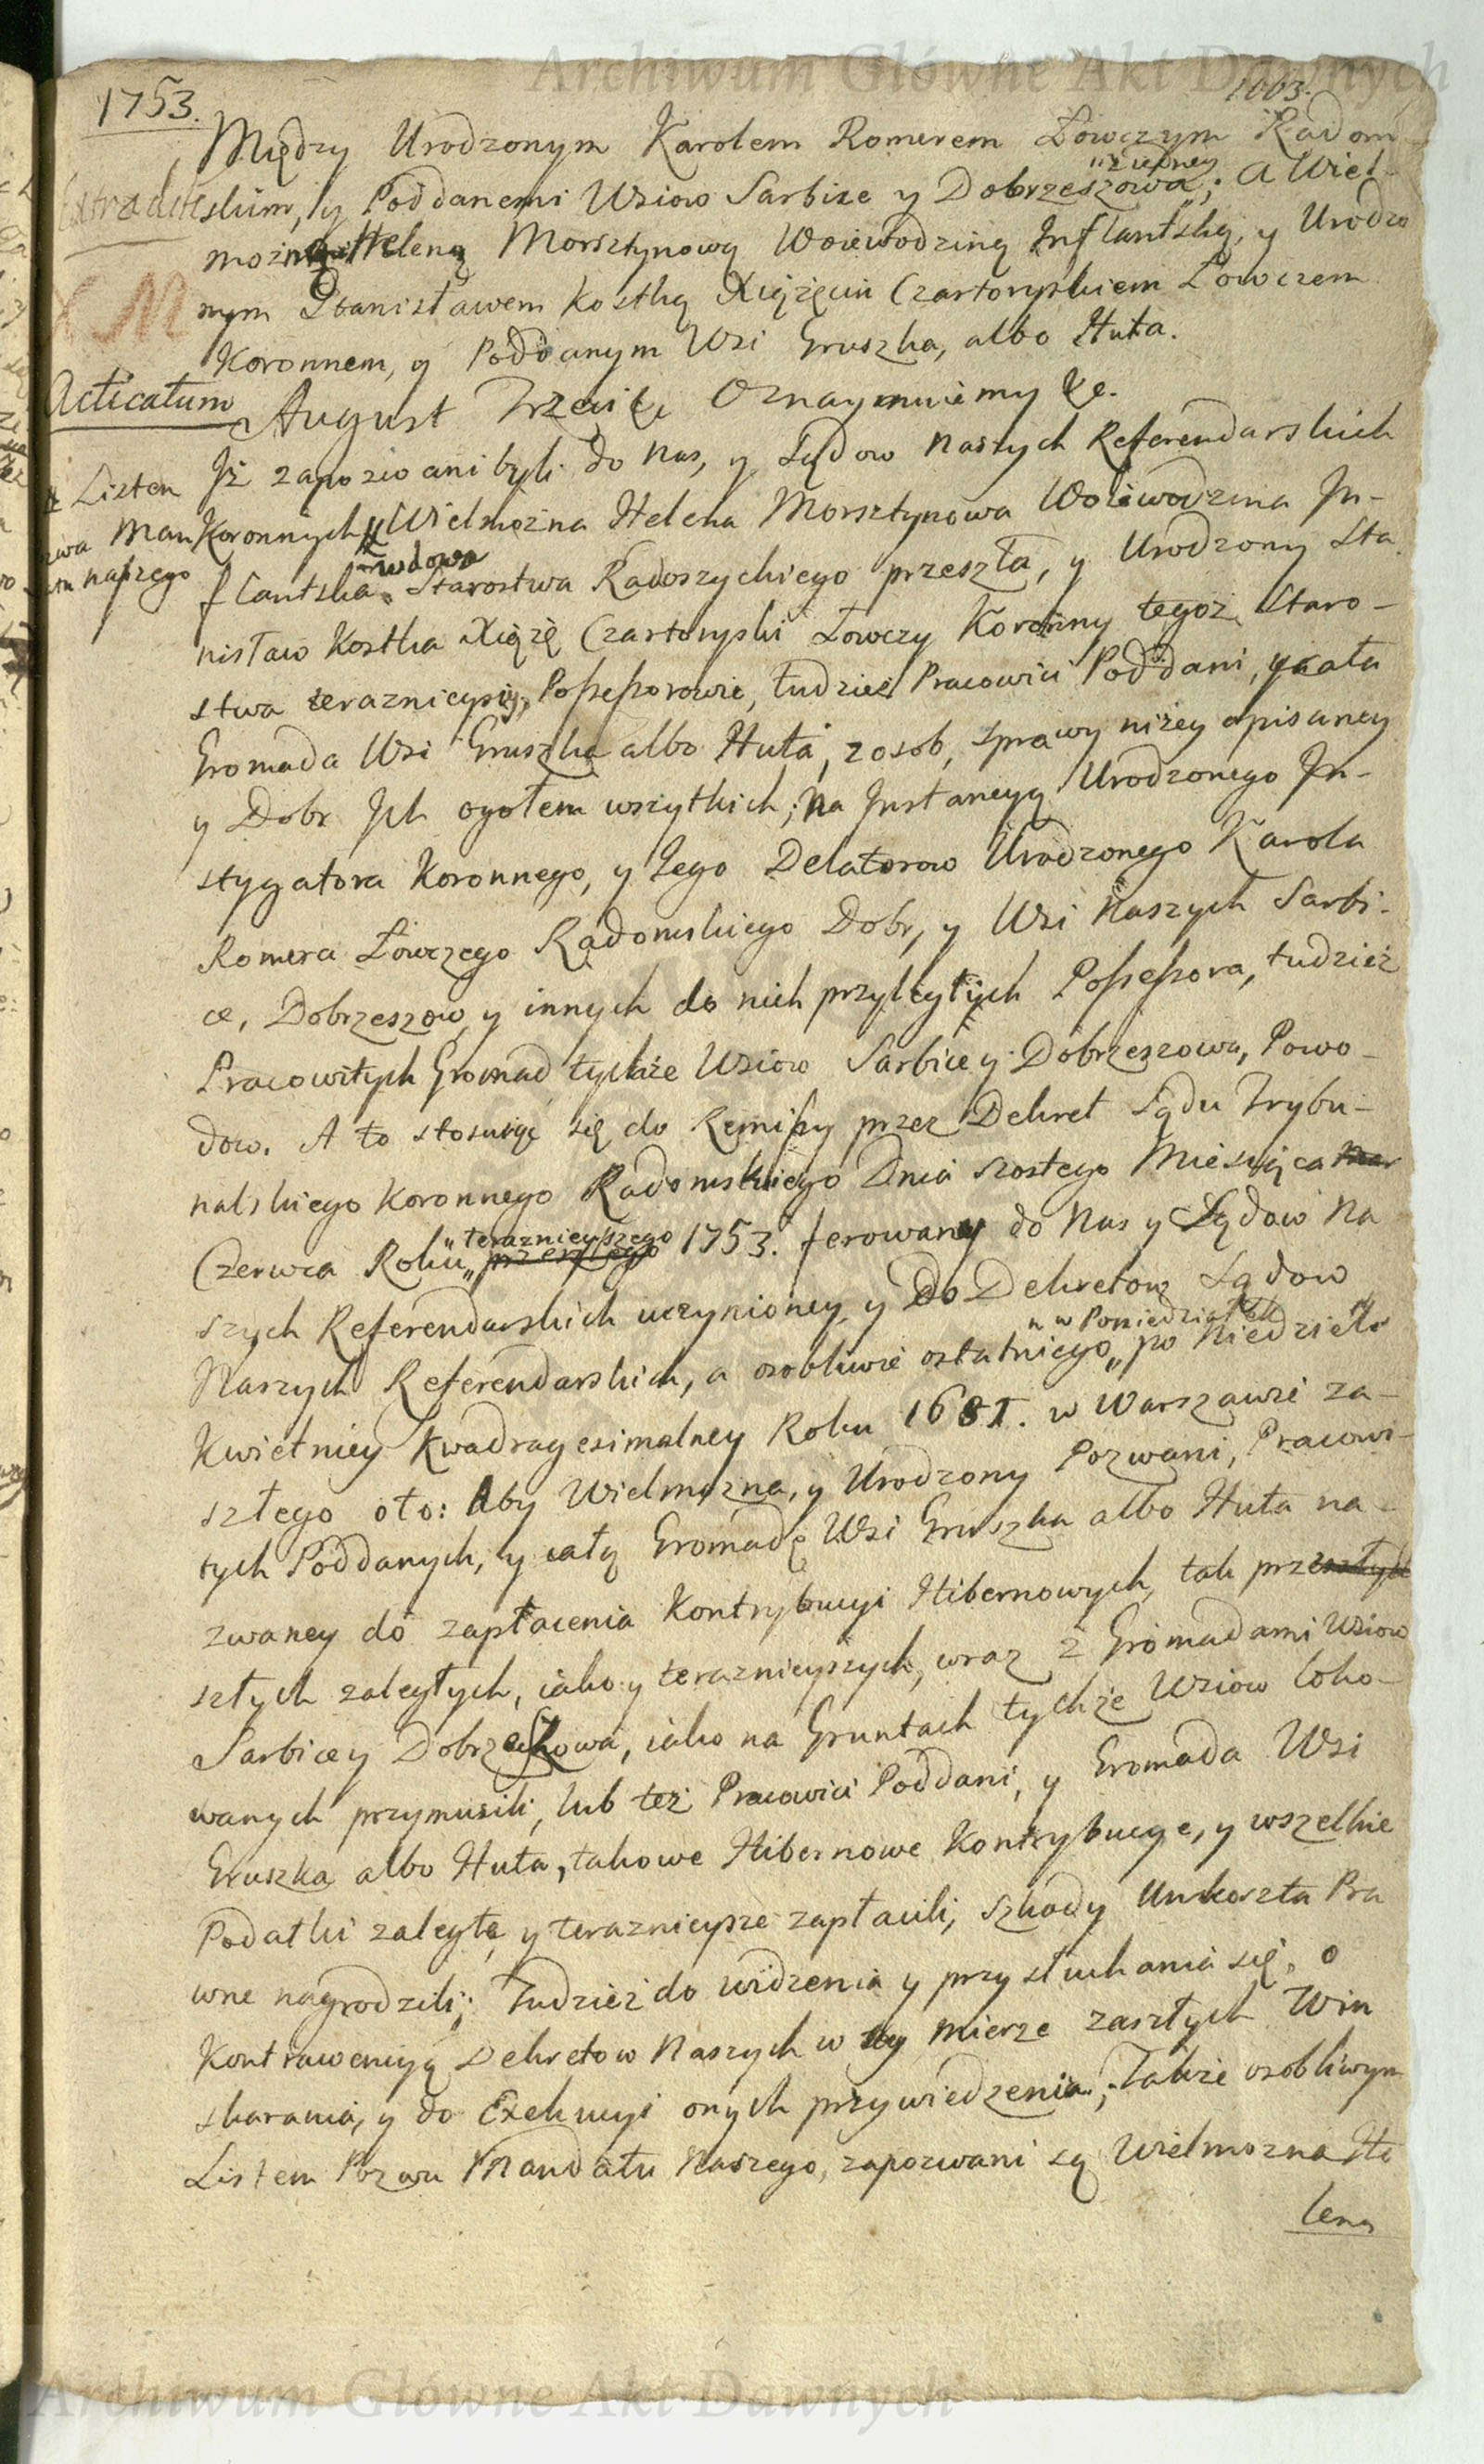 Archiwum Główne Akt Dawnych
1753.
1003.
Między Urodzonym Karolem Romerem Łowczym Radom-
skim, y Poddanemi Wsiow Sarbice y Dobrzeszowa; A Wiel-
możną Heleną Morsztynową Woiewodziną Inflantską, y Urodzo
nym Stanisławem Kostką Xiążęciu Czartoryskiem Łowczem
Koronnem, y Poddanym Wsi Gruszka, albo Huta.
Acticatum
August Trzeci &c. Oznaymuiemy &c.
Iż zapozwani byli do Nas, y Sądow Naszych Referendarskich
Listem
Man
naszego
Koronnych Wielmożna Helena Morsztynowa Woiewodzina In-
wdowa
flantska Starostwa Radoszyckiego przeszła, y Urodzony Sta
nisław Kostka Xiąże Czartoryski Łowczy Koronny tegoż Staro-
stwa teraznieyszy Possessorowie, tudzież Pracowici Poddani, y cała
Gromada Wsi Gruszka albo Huta, z osob, sprawy niżey opisaney
y Dobr Ich ogołem wszytkich; Na Instancyą Urodzonego In-
stygatora Koronnego, y Jego Delatorow Urodzonego Karola
Romera Łowczego Radomskiego Dobr, y Wsi Naszych Sarbi-
ce, Dobrzeszow, y innych do nich przyległych Possessora, tudzież
Pracowitych Gromad tychże Wsiow Sarbice y Dobrzeszowa, Powo-
dow. A to stosuiąc się do Remissy przez Dekret Sądu Trybu-
nalskiego Koronnego Radomskiego Dnia szostego Miesiąca
Czerwca Roku teraznieyszego przeszłego 1753. ferowany do Nas y Sądow Na
szych Referendarskich uczynioney, y Do Dekretow Sądow
Naszych Referendarskich, a osobliwie ostatniego w Poniedziałek po Niedzieli
Kwietniey Kwadragesimalney Roku 1681. w Warszawie za-
szłego oto: Aby Wielmożna, y Urodzony Pozwani, Pracowi-
tych Poddanych, y całą Gromadę Wsi Gruszka albo Huta na-
zwaney do zapłacenia Kontrybucyi Hibernowych, tak prze
szłych zaległych, iako y teraznieyszych, wraz z Gromadami Wsiow
Sarbice y Dobrzeszowa, iako na Gruntach tychże Wsiow loko-
wanych przymusili, lub też Pracowici Poddani, y Gromada Wsi
Gruszka albo Huta, takowe Hibernowe Kontrybucye, y wszelkie
Podatki zaległe y teraznieysze zapłacili, szkody Unkoszta Pra
wne nagrodzili; Tudzież do widzenia y przysłuchania się, o
Kontrawencyą Dekretow Naszych w tey mierze zaszłych Win
skarania, y do Exekucyi onych przywiedzenia; Także osobliwym
Listem Pozwu Mandatu Naszego, zapozwani są Wielmożna He
lena
Archiwum Główne Akt Dawnych